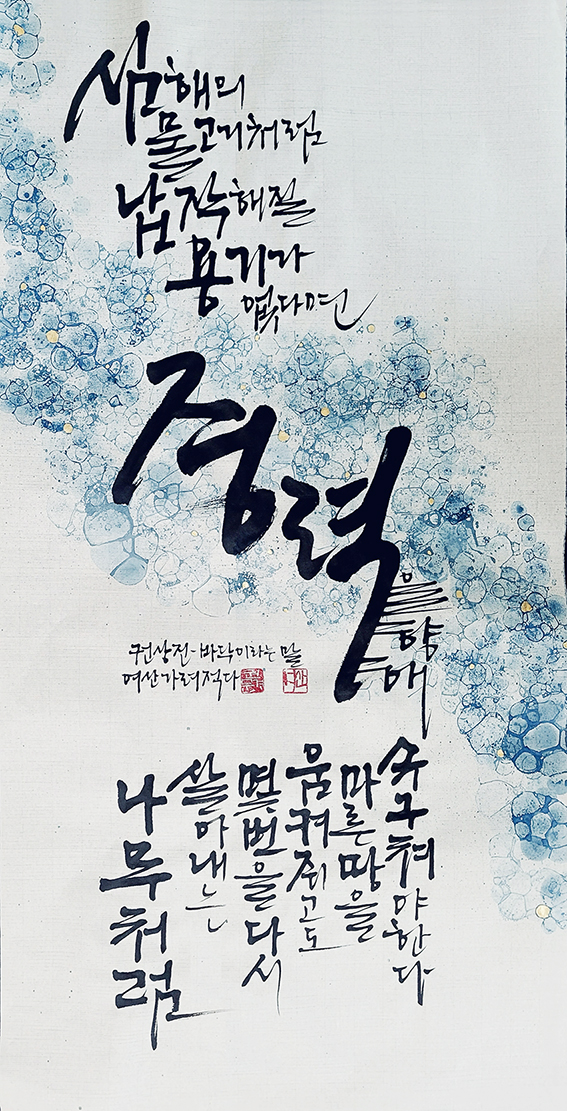 심해의
물고기처럼
납작해질
용기가
없다면
중력을 향해
솟구쳐야 한다
마른 땅을
움켜쥐고도
몇 번을 다시
살아내는
나무처럼
권상진 - 바닥이라는 말
여산 가려 적다